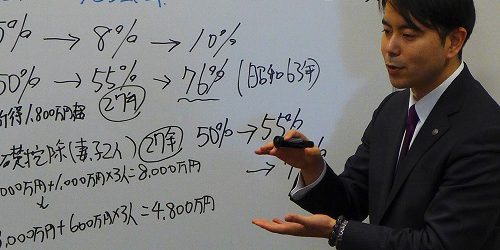 5% → 8% → 10%
50% → 55% → 76% (昭和63年)
27年
所得1,800万円超
控除(妻,子2人) 27年 50% → 55%
→
000万円+1,000万円×3人=8,000万円
↓
3,000万円+600万円×3人=4,800万円